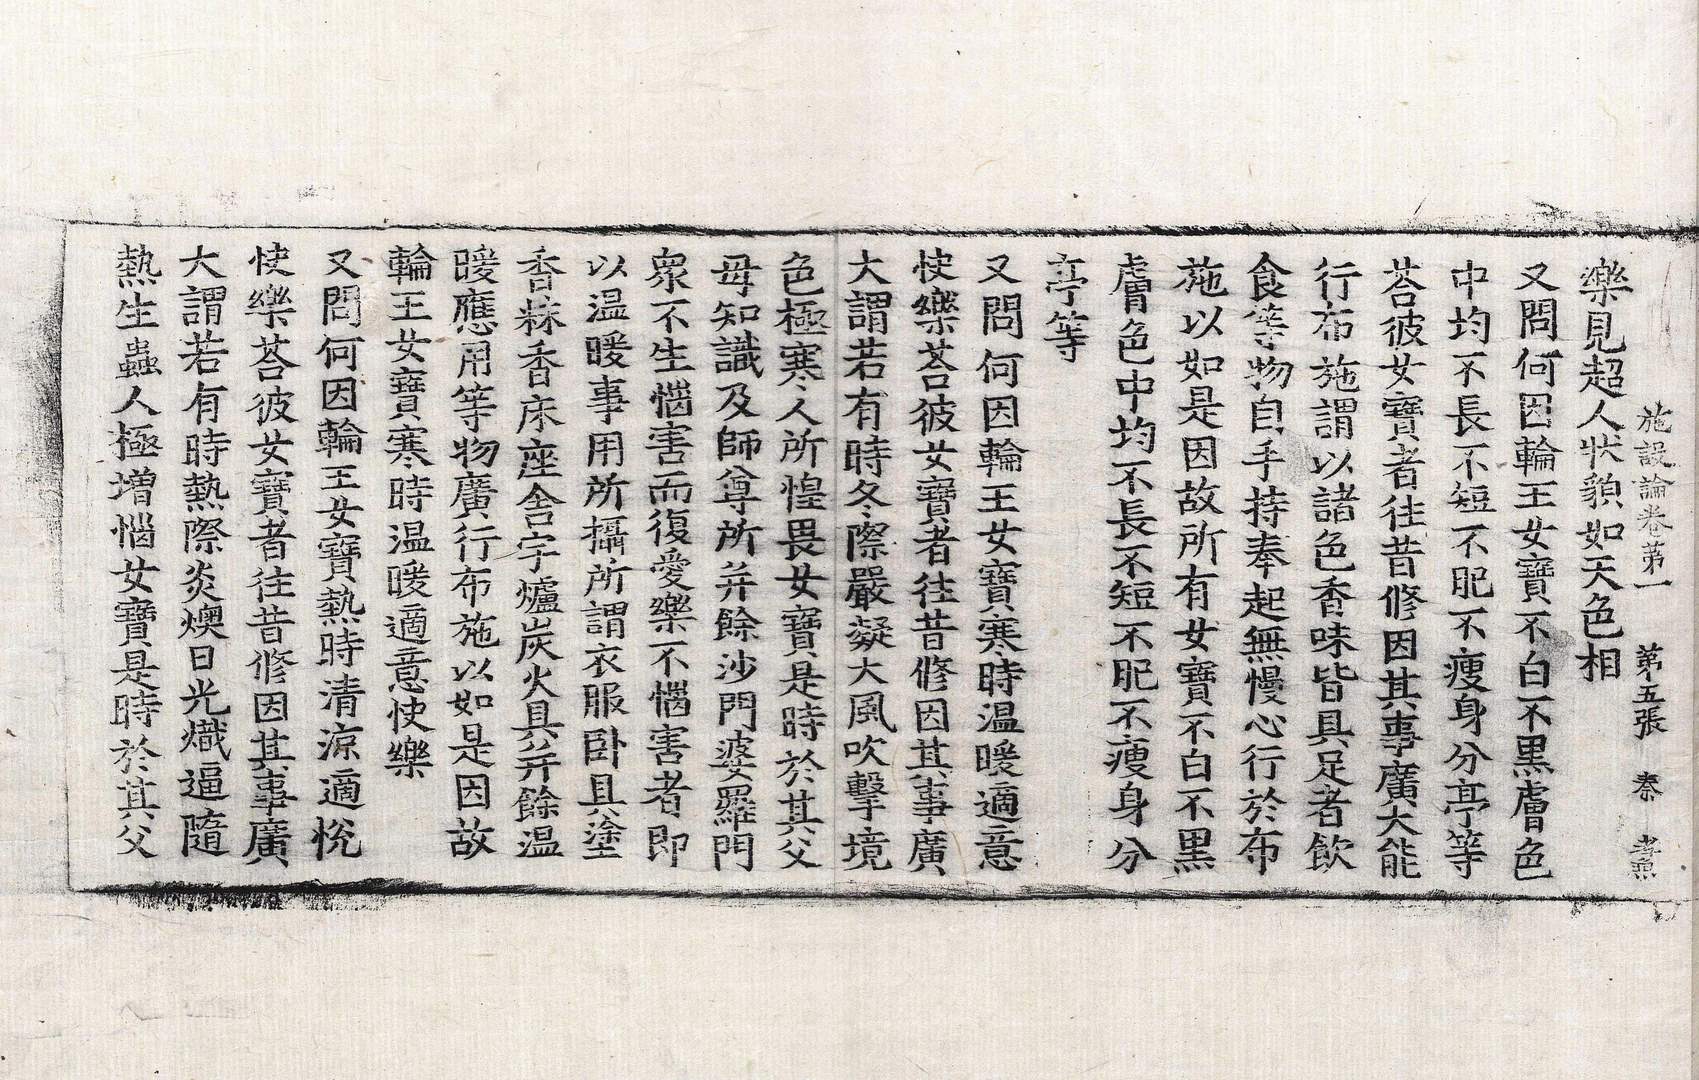 施設論卷第一 第五張 秦
樂見超人狀貌如天色相
又問何因輪王女寶不白不黑膚色
中均不長不短不肥不瘦身分亭等
荅彼女寶者往昔修因其事廣大能
行布施謂以諸色香味皆具足者飲
食等物自手持奉起無慢心行於布
施以如是因故所有女寶不白不黑
膚色中均不長不短不肥不瘦身分
亭等
又問何因輪王女寶寒時温暖適意
快樂荅彼女寶者往昔修因其事廣
大謂若有時冬際嚴凝大風吹擊境
色極寒人所惶畏女寶是時於其父
母知識及師尊所并餘沙門婆羅門
衆不生惱害而復愛樂不惱害者即
以温暖事用所攝所謂衣服卧具塗
香粖香床座舎宇爐炭火具并餘温
暖應用等物廣行布施以如是因故
輪王女寶寒時温暖適意快樂
又問何因輪王女寶熱時清涼適悅
快樂荅彼女寶者往昔修因其事廣
大謂若有時熱際炎燠日光熾逼隨
熱生蟲人極增惱女寶是時於其父